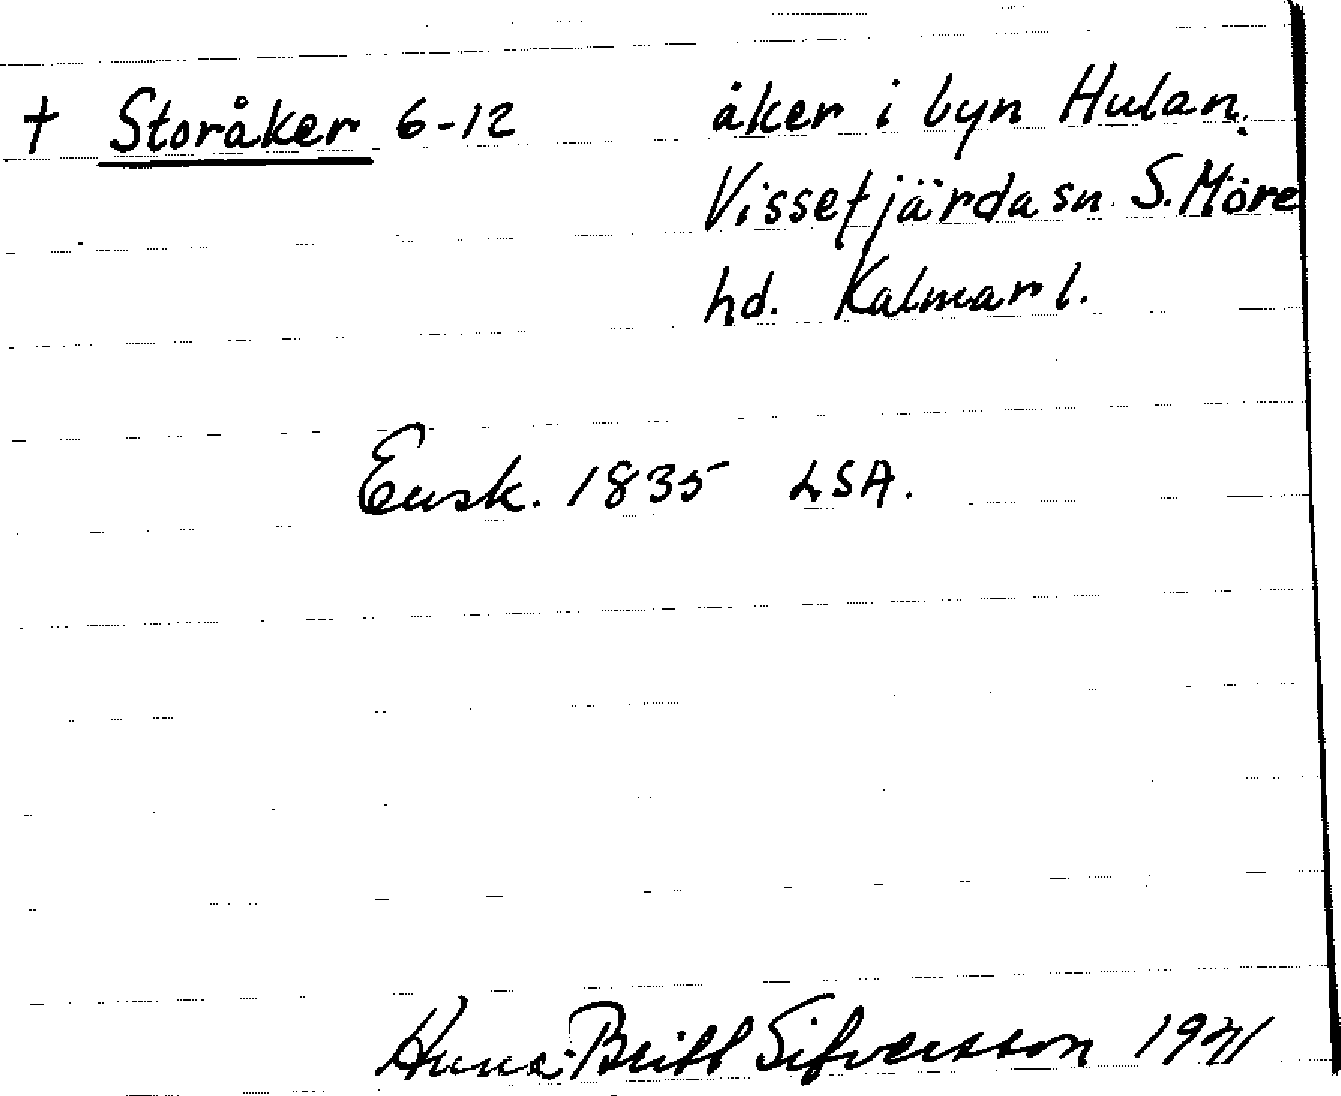 † Storåker 6-12 åker i byn Hulan.
Vissefjärda sn. S. Möre
hd. Kalmar l.
Ensk. 1835 LSA.
Anna-Britt Sifversson